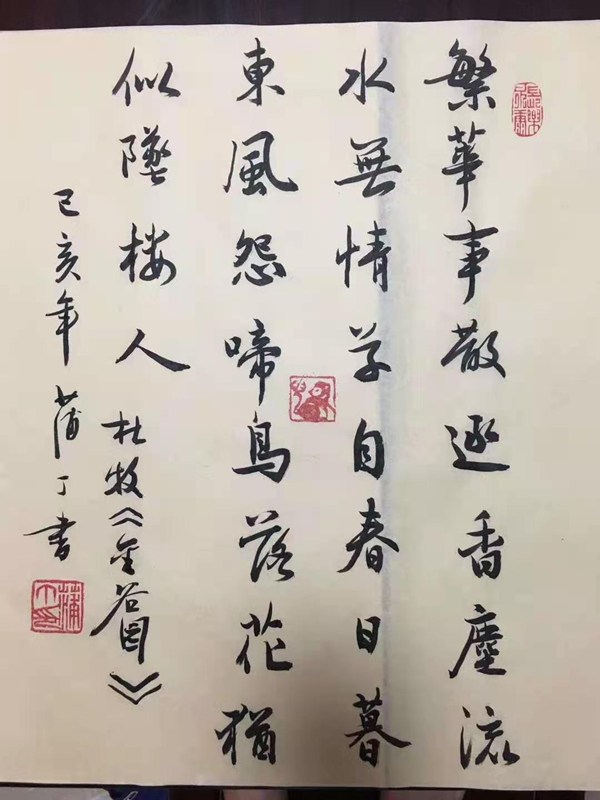 繁華事散逐香塵流
水無情草自春日暮
東風怨啼鳥落花猶
似墜楼人
杜牧《金谷园》
己亥年蒲丁書